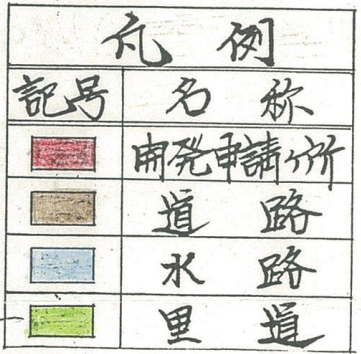 凡例
記号 名称
開発申請ヶ所
道路
水路
里道